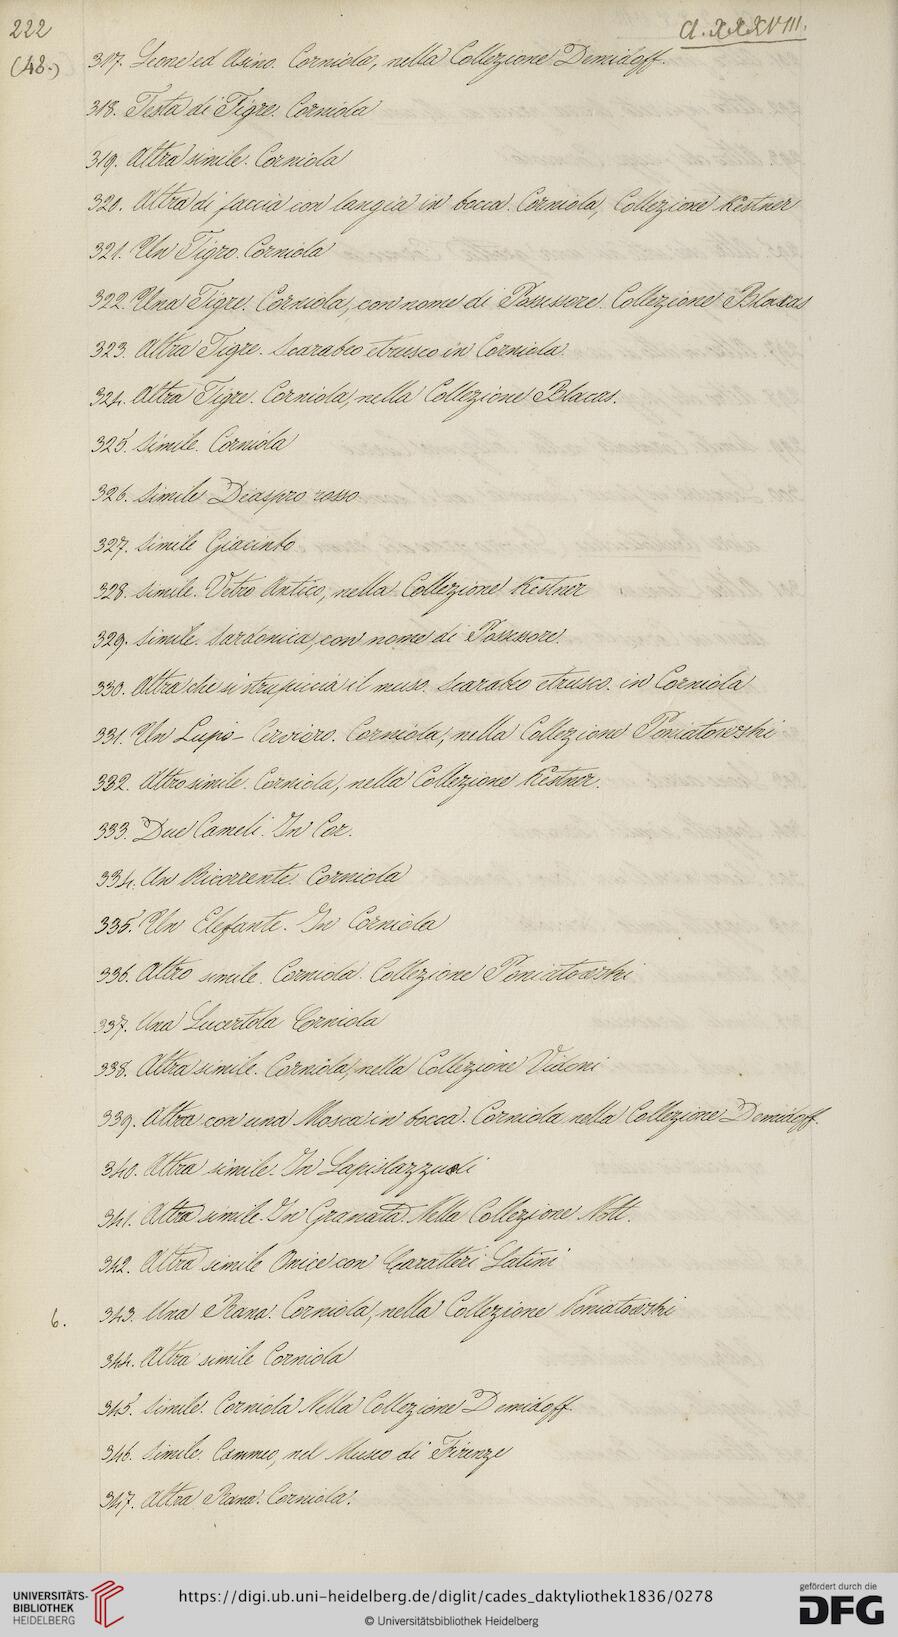 222
Cl. XXXVIII.
(48.)
317. Leone ed Asino. Corniola, nella Collezione Demidoff.
318. Testa di Tigre. Corniola
319. Altra simile. Corniola
320. Altra di faccia con langia in bocca. Corniola, Collezione Kestner
321. Un Tigro. Corniola
322. Una Tigre. Corniola, con nome di Possessore. Collezione Blacas
323. Altra Tigre. Scarabeo etrusco in Corniola.
324. Altra Tigre. Corniola, nella Collezione Blacas.
325. Simile. Corniola
326. Simile Diaspro rosso
327. Simile Giacinto
328. Simile. Vetro Antico, nella Collezione Kestner
329. Simile. Sardonica, con nome di Possessore.
330. Altra che si strupiccia il muso. Scarabeo etrusco. in Corniola
331. Un Lupo-Cerviero. Corniola, nella Collezione Poniatowski
332. Altro simile. Corniola, nella Collezione Kestner.
333. Due Cameli. In Cor.
334. Un Ricorrente. Corniola
335. Un Elefante. In Corniola
336. Altro simile. Corniola. Collezione Poniatowski
337. Una Lucertola Corniola
338. Altra simile. Corniola, nella Collezione Vidoni
339. Altra con una Mosca in bocca. Corniola nella Collezione Demidoff.
340. Altra simile. In Lapislazzuoli
341. Altra simile. In Granata. Nella Collezione Nott.
342. Altra simile Onice con Caratteri Latini
6. 343. Una Rana. Corniola, nella Collezione Poniatowski
344. Altra simile Corniola
345. Simile. Corniola Nella Collezione Demidoff.
346. Simile. Cammeo, nel Museo di Firenze
347. Altra Rana. Corniola.
UNIVERSITÄTS-
BIBLIOTHEK
HEIDELBERG
https://digi.ub.uni-heidelberg.de/diglit/cades_daktyliothek1836/0278
© Universitätsbibliothek Heidelberg
gefördert durch die
DFG